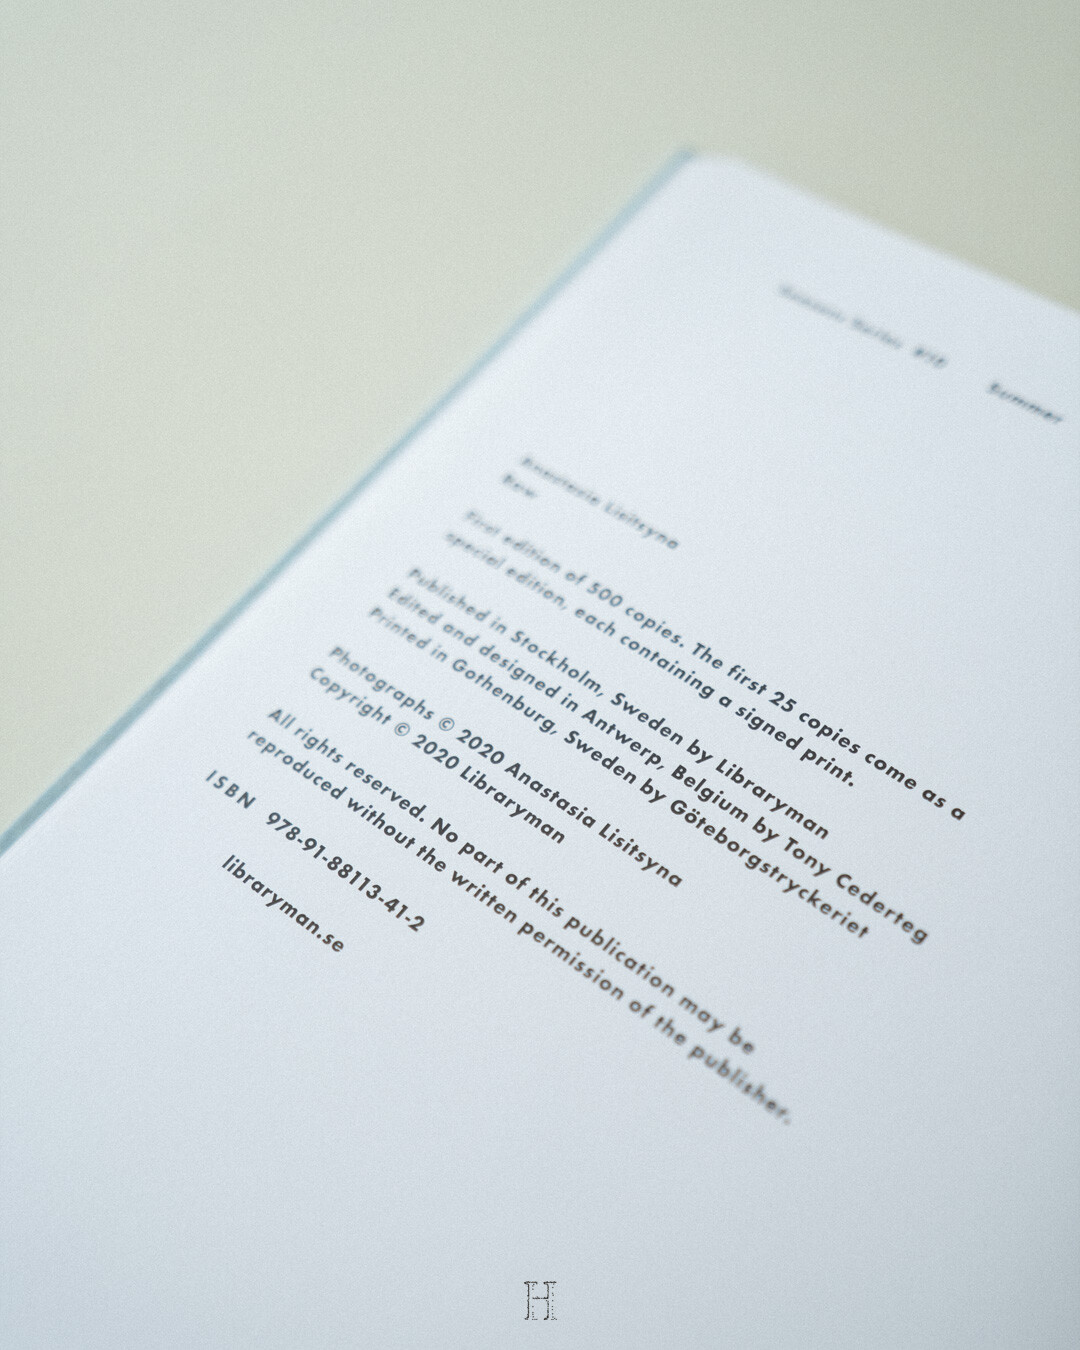 Summer
Anastasia Lisitsyna
Raw
First edition of 500 copies. The first 25 copies come as a
special edition, each containing a signed print.
Published in Stockholm, Sweden by Libraryman
Edited and designed in Antwerp, Belgium by Tony Cederteg
Printed in Gothenburg, Sweden by Göteborgstryckeriet
Photographs © 2020 Anastasia Lisitsyna
Copyright © 2020 Libraryman
All rights reserved. No part of this publication may be
reproduced without the written permission of the publisher.
ISBN 978-91-88113-41-2
libraryman.se
H